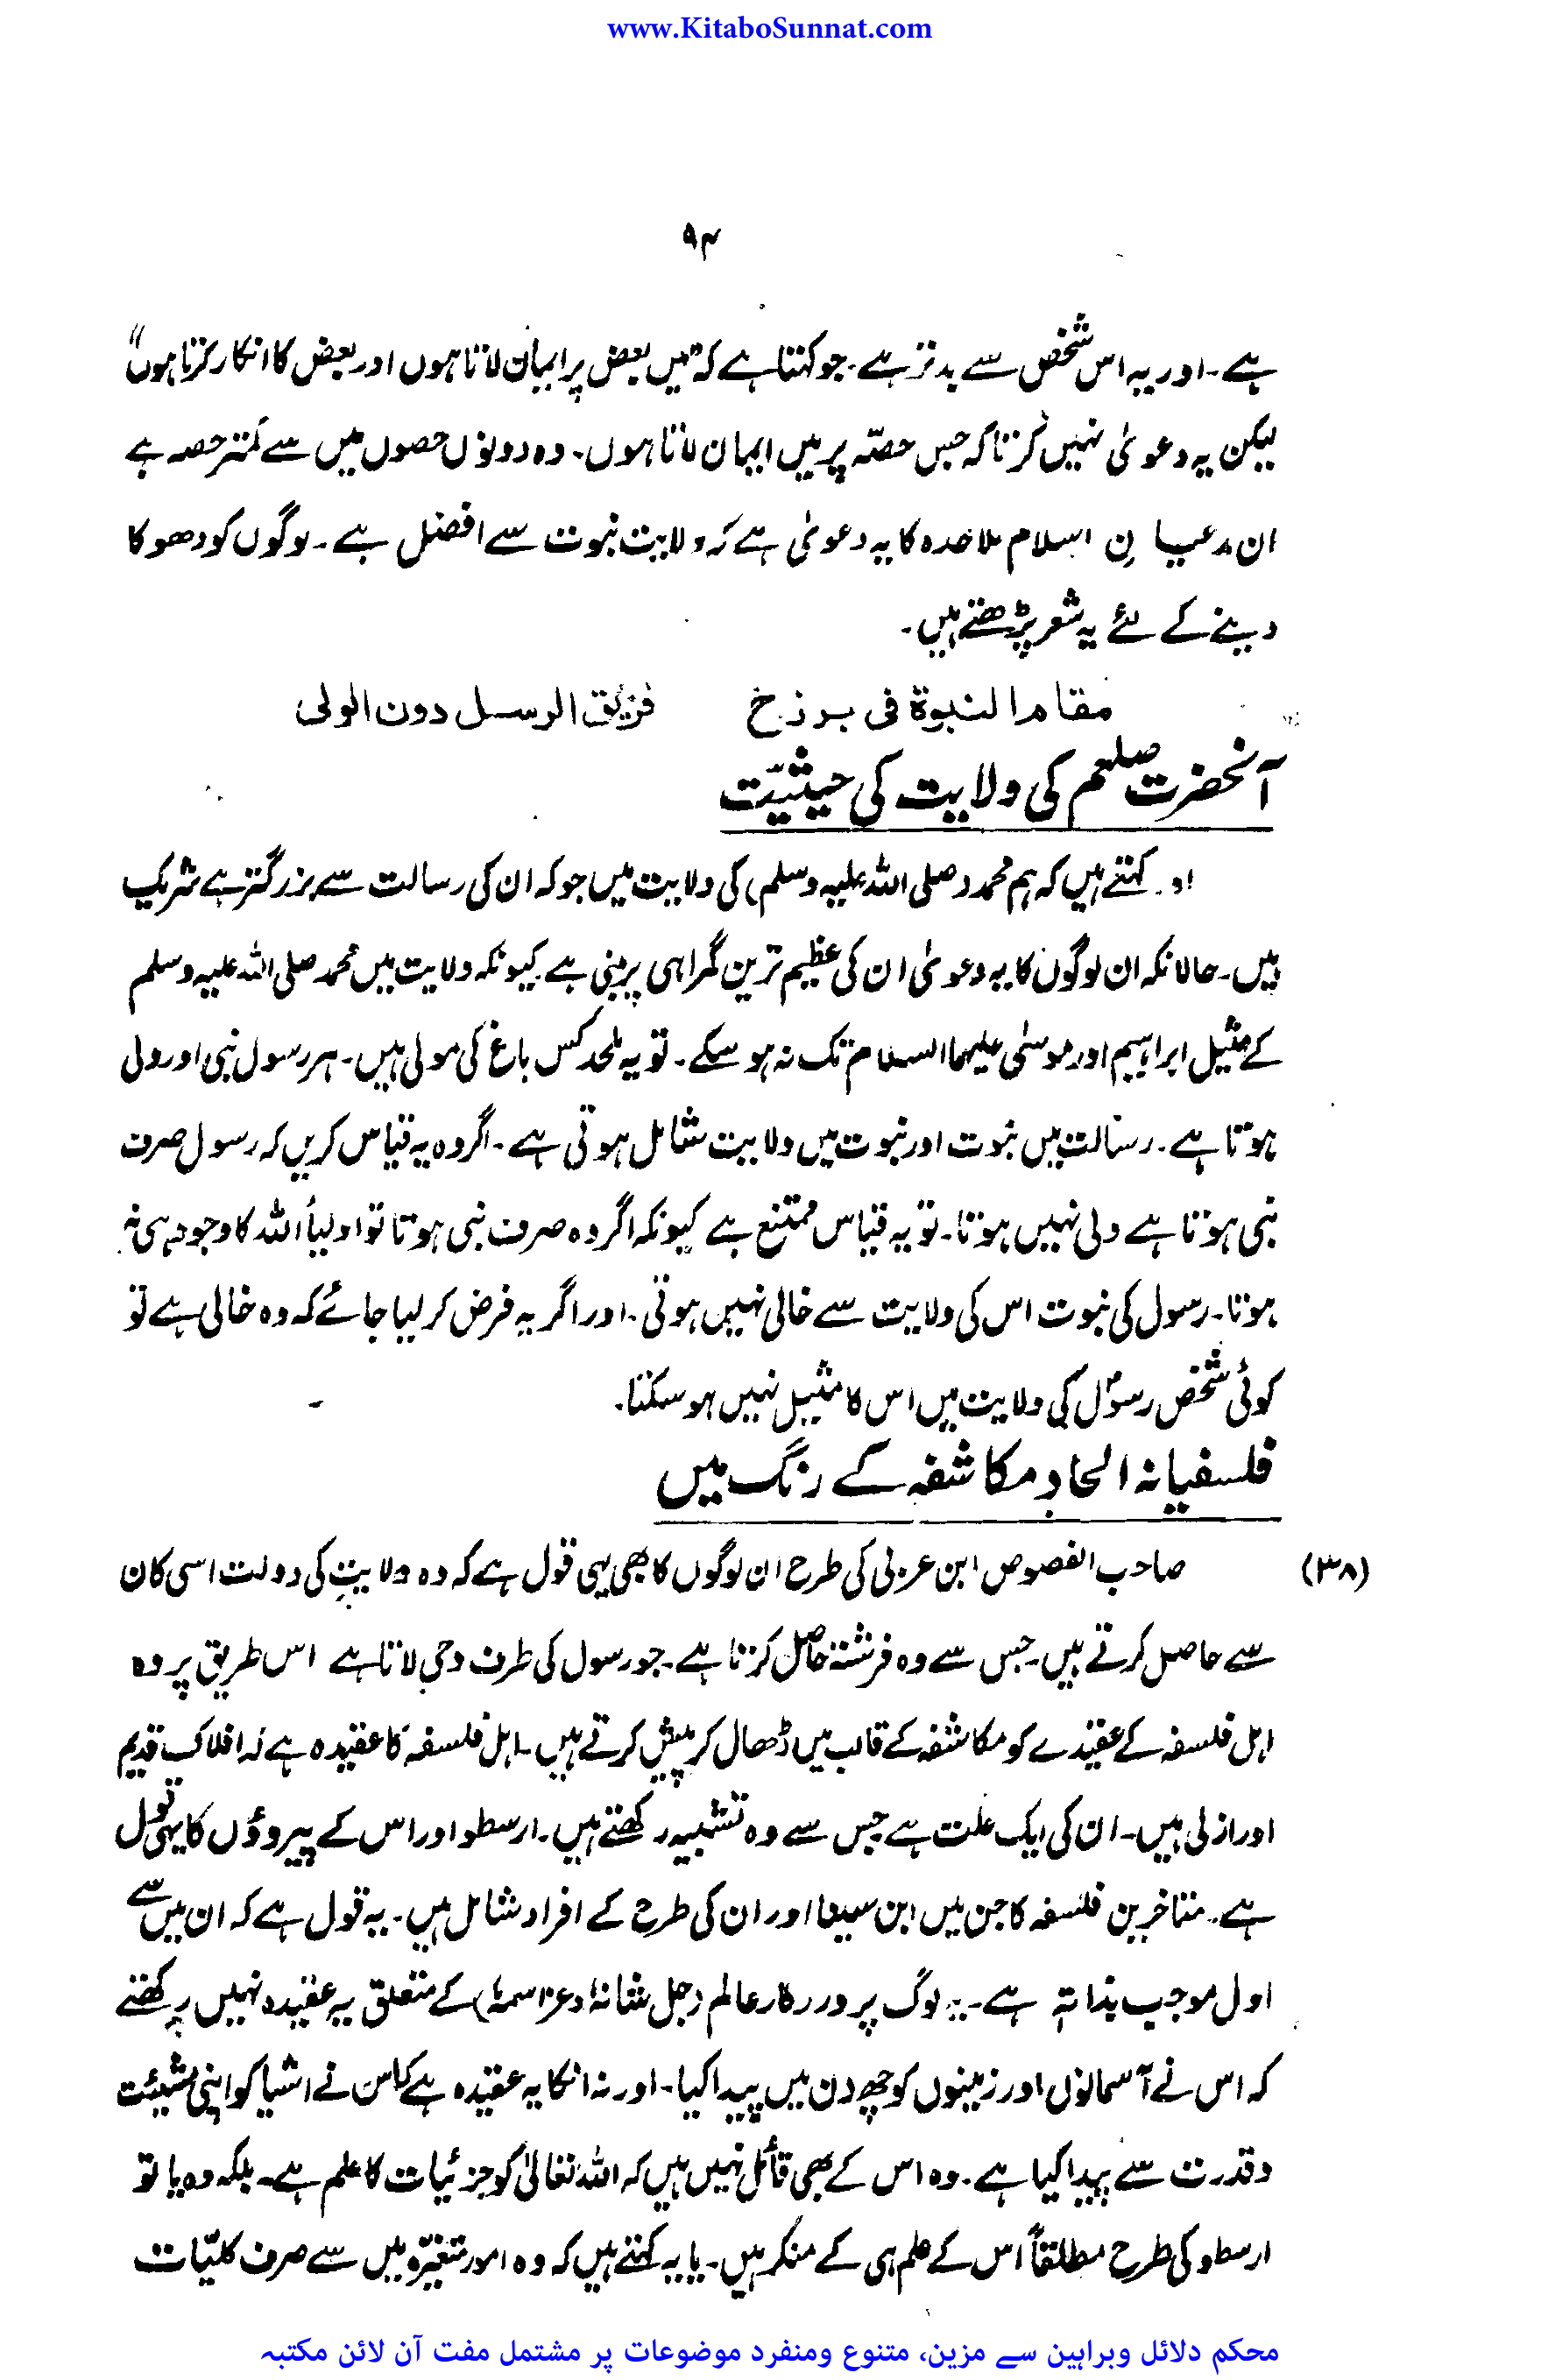 www.KitaboSunnat.com
۹۴
ہے۔ اور یہ اس شخص سے بدتر ہے۔ جو کہتا ہے کہ "میں بعض پر ایمان لاتا ہوں اور بعض کا انکار کرتا ہوں"
لیکن یہ دعویٰ نہیں کرتا کہ جس حصّہ پر میں ایمان لاتا ہوں۔ وہ دونوں حصوں میں سے کمتر حصہ ہے
ان مدعیانِ اسلام ملاحدہ کا یہ دعویٰ ہے کہ ولایت نبوت سے افضل ہے۔ لوگوں کو دھوکا
دینے کے لئے یہ شعر پڑھتے ہیں۔
مقام النبوۃ فی برزخ فویق الرسل دون الولی
آنحضرت صلعم کی ولایت کی حیثیّت
اور کہتے ہیں کہ ہم محمد (صلی اللہ علیہ وسلم) کی ولایت میں جو کہ ان کی رسالت سے بزرگتر ہے شریک
ہیں۔ حالانکہ ان لوگوں کا یہ دعویٰ ان کی عظیم ترین گمراہی پر مبنی ہے۔ کیونکہ ولایت میں محمد صلی اللہ علیہ وسلم
کے مثیل ابراہیم اور موسٰی علیہما السلام تک نہ ہو سکے۔ تو یہ ملحد کس باغ کی مولی ہیں۔ ہر رسول نبی اور ولی
ہوتا ہے۔ رسالت میں نبوت اور نبوت میں ولایت شامل ہوتی ہے۔ اگر وہ یہ قیاس کریں کہ رسول صرف
نبی ہوتا ہے ولی نہیں ہوتا۔ تو یہ قیاس ممتنع ہے کیونکہ اگر وہ صرف نبی ہوتا تو اولیأ اللہ کا وجود ہی نہ
ہوتا۔ رسول کی نبوت اس کی ولایت سے خالی نہیں ہوتی۔ اور اگر یہ فرض کر لیا جائے کہ وہ خالی ہے تو
کوئی شخص رسولؐ کی ولایت میں اس کا مثیل نہیں ہو سکتا۔
فلسفیانہ الحاد مکاشفہ کے رنگ میں
(۳۸) صاحب الفصوص ابن عربی کی طرح ان لوگوں کا بھی یہی قول ہے کہ وہ ولایت کی دولت اسی کان
سے حاصل کرتے ہیں۔ جس سے وہ فرشتہ حاصل کرتا ہے۔ جو رسول کی طرف وحی لاتا ہے اس طریق پر وہ
اہل فلسفہ کے عقیدے کو مکاشفہ کے قالب میں ڈھال کر پیش کرتے ہیں۔ اہل فلسفہ کا عقیدہ ہے کہ افلاک قدیم
اور ازلی ہیں۔ ان کی ایک علت ہے جس سے وہ تشبیہ رکھتے ہیں۔ ارسطو اور اس کے پیروؤں کا یہی قول
ہے۔ متاخرین فلسفہ کا جن میں ابن سینا اور ان کی طرح کے افراد شامل ہیں۔ یہ قول ہے کہ ان میں سے
اول موجب بذاتہٖ ہے۔ یہ لوگ پروردگار عالم (جل شانہٗ وعز اسمہٗ) کے متعلق یہ عقیدہ نہیں رکھتے
کہ اس نے آسمانوں اور زمینوں کو چھ دن میں پیدا کیا۔ اور نہ انکا یہ عقیدہ ہے کہ اس نے اشیا کو اپنی مشیئت
و قدرت سے پیدا کیا ہے۔ وہ اس کے بھی قائل نہیں ہیں کہ اللہ تعالیٰ کو جزئیات کا علم ہے۔ بلکہ وہ یا تو
ارسطو کی طرح مطلقاً اس کے علم ہی کے منکر ہیں۔ یا یہ کہتے ہیں کہ وہ امور متغیّرہ میں سے صرف کلیّات
محکم دلائل وبراہین سے مزین، متنوع ومنفرد موضوعات پر مشتمل مفت آن لائن مکتبہ